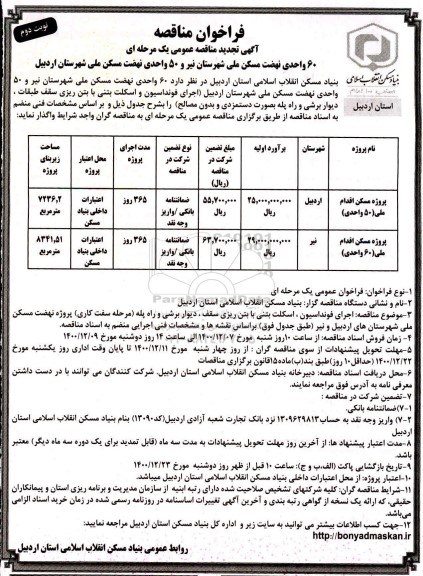 نوبت دوم
فراخوان مناقصه
آگهی تجدید مناقصه عمومی یک مرحله ای
۶۰ واحدی نهضت مسکن ملی شهرستان نیر و ۵۰ واحدی نهضت مسکن ملی شهرستان اردبیل
بنیاد مسکن انقلاب اسلامی
استان اردبیل
بنیاد مسکن انقلاب اسلامی استان اردبیل در نظر دارد ۶۰ واحدی نهضت مسکن ملی شهرستان نیر و ۵۰
واحدی نهضت مسکن ملی شهرستان اردبیل (اجرای فونداسیون و اسکلت بتنی با بتن ریزی سقف طبقات ،
دیوار برشی و راه پله بصورت دستمزدی و بدون مصالح) را بشرح جدول ذیل و بر اساس مشخصات فنی منضم
به اسناد مناقصه از طریق برگزاری مناقصه عمومی یک مرحله ای به مناقصه گران واجد شرایط واگذار نماید:
نام پروژه | شهرستان | برآورد اولیه | مبلغ تضمین شرکت در مناقصه (ریال) | نوع تضمین شرکت در مناقصه | مدت اجرای پروژه | محل اعتبار پروژه | مساحت زیربنای پروژه
پروژه مسکن اقدام ملی(۵۰ واحدی) | اردبیل | ۲۵,۰۰۰,۰۰۰,۰۰۰ ریال | ۵۵,۷۰۰,۰۰۰ ریال | ضمانتنامه بانکی /واریز وجه نقد | ۳۶۵ روز | اعتبارات داخلی بنیاد مسکن | ۷۲۳۶,۲ مترمربع
پروژه مسکن اقدام ملی(۶۰ واحدی) | نیر | ۲۹,۰۰۰,۰۰۰,۰۰۰ ریال | ۶۳,۷۰۰,۰۰۰ ریال | ضمانتنامه بانکی /واریز وجه نقد | ۳۶۵ روز | اعتبارات داخلی بنیاد مسکن | ۸۳۴۱,۵۱ مترمربع
۱-نوع فراخوان: فراخوان عمومی یک مرحله ای
۲-نام و نشانی دستگاه مناقصه گزار: بنیاد مسکن انقلاب اسلامی استان اردبیل
۳-موضوع مناقصه: اجرای فونداسیون ، اسکلت بتنی با بتن ریزی سقف ، دیوار برشی و راه پله (مرحله سفت کاری) پروژه نهضت مسکن
ملی شهرستان های اردبیل و نیر (طبق جدول فوق) براساس نقشه ها و مشخصات فنی اجرایی منضم به اسناد مناقصه.
۴- زمان فروش اسناد مناقصه: از ساعت ۱۰روز شنبه مورخ ۱۴۰۰/۱۲/۰۷ الی ساعت ۱۴ روز دوشنبه مورخ ۱۴۰۰/۱۲/۰۹
۵-مهلت تحویل پیشنهادات از سوی مناقصه گران : از روز چهار شنبه مورخ ۱۴۰۰/۱۲/۱۱ تا پایان وقت اداری روز یکشنبه مورخ
۱۴۰۰/۱۲/۲۲ (حداقل۱۰ روز)طبق بند(ب)ماده۱۵قانون برگزاری مناقصات
۶-محل دریافت اسناد مناقصه: دبیرخانه بنیاد مسکن انقلاب اسلامی استان اردبیل. شرکت کنندگان می توانند با در دست داشتن
معرفی نامه به آدرس فوق مراجعه نمایند.
۷-تضمین شرکت در مناقصه :
۷-۱)ضمانتنامه بانکی.
۷-۲) واریز وجه نقد به حساب۱۳۰۹۶۲۹۸۱۳ نزد بانک تجارت شعبه آزادی اردبیل(کد۱۳۰۹۰) بنام بنیاد مسکن انقلاب اسلامی استان
اردبیل
۸-مدت اعتبار پیشنهاد ها: از آخرین روز مهلت تحویل پیشنهادات به مدت سه ماه (قابل تمدید برای یک دوره سه ماه دیگر) معتبر
باشد.
۹-تاریخ بازگشایی پاکت (الف،ب و ج): ساعت ۱۰ قبل از ظهر روز دوشنبه مورخ ۱۴۰۰/۱۲/۲۳
۱۰-اعتبار پروژه: از محل اعتبارات داخلی بنیاد مسکن انقلاب اسلامی استان اردبیل میباشد.
۱۱-شرایط مناقصه گران: کلیه شرکتهای تشخیص صلاحیت شده دارای رتبه ابنیه از سازمان مدیریت و برنامه ریزی استان و پیمانکاران
حقیقی، که ارائه یک نسخه از گواهی رتبه بندی و آخرین آگهی تغییرات اساسنامه در روزنامه رسمی شده در زمان خرید اسناد الزامی
می باشد.
۱۲-جهت کسب اطلاعات بیشتر می توانید به سایت زیر و اداره کل بنیاد مسکن استان اردبیل مراجعه نمایید:
http://bonyadmaskan.ir/
روابط عمومی بنیاد مسکن انقلاب اسلامی استان اردبیل